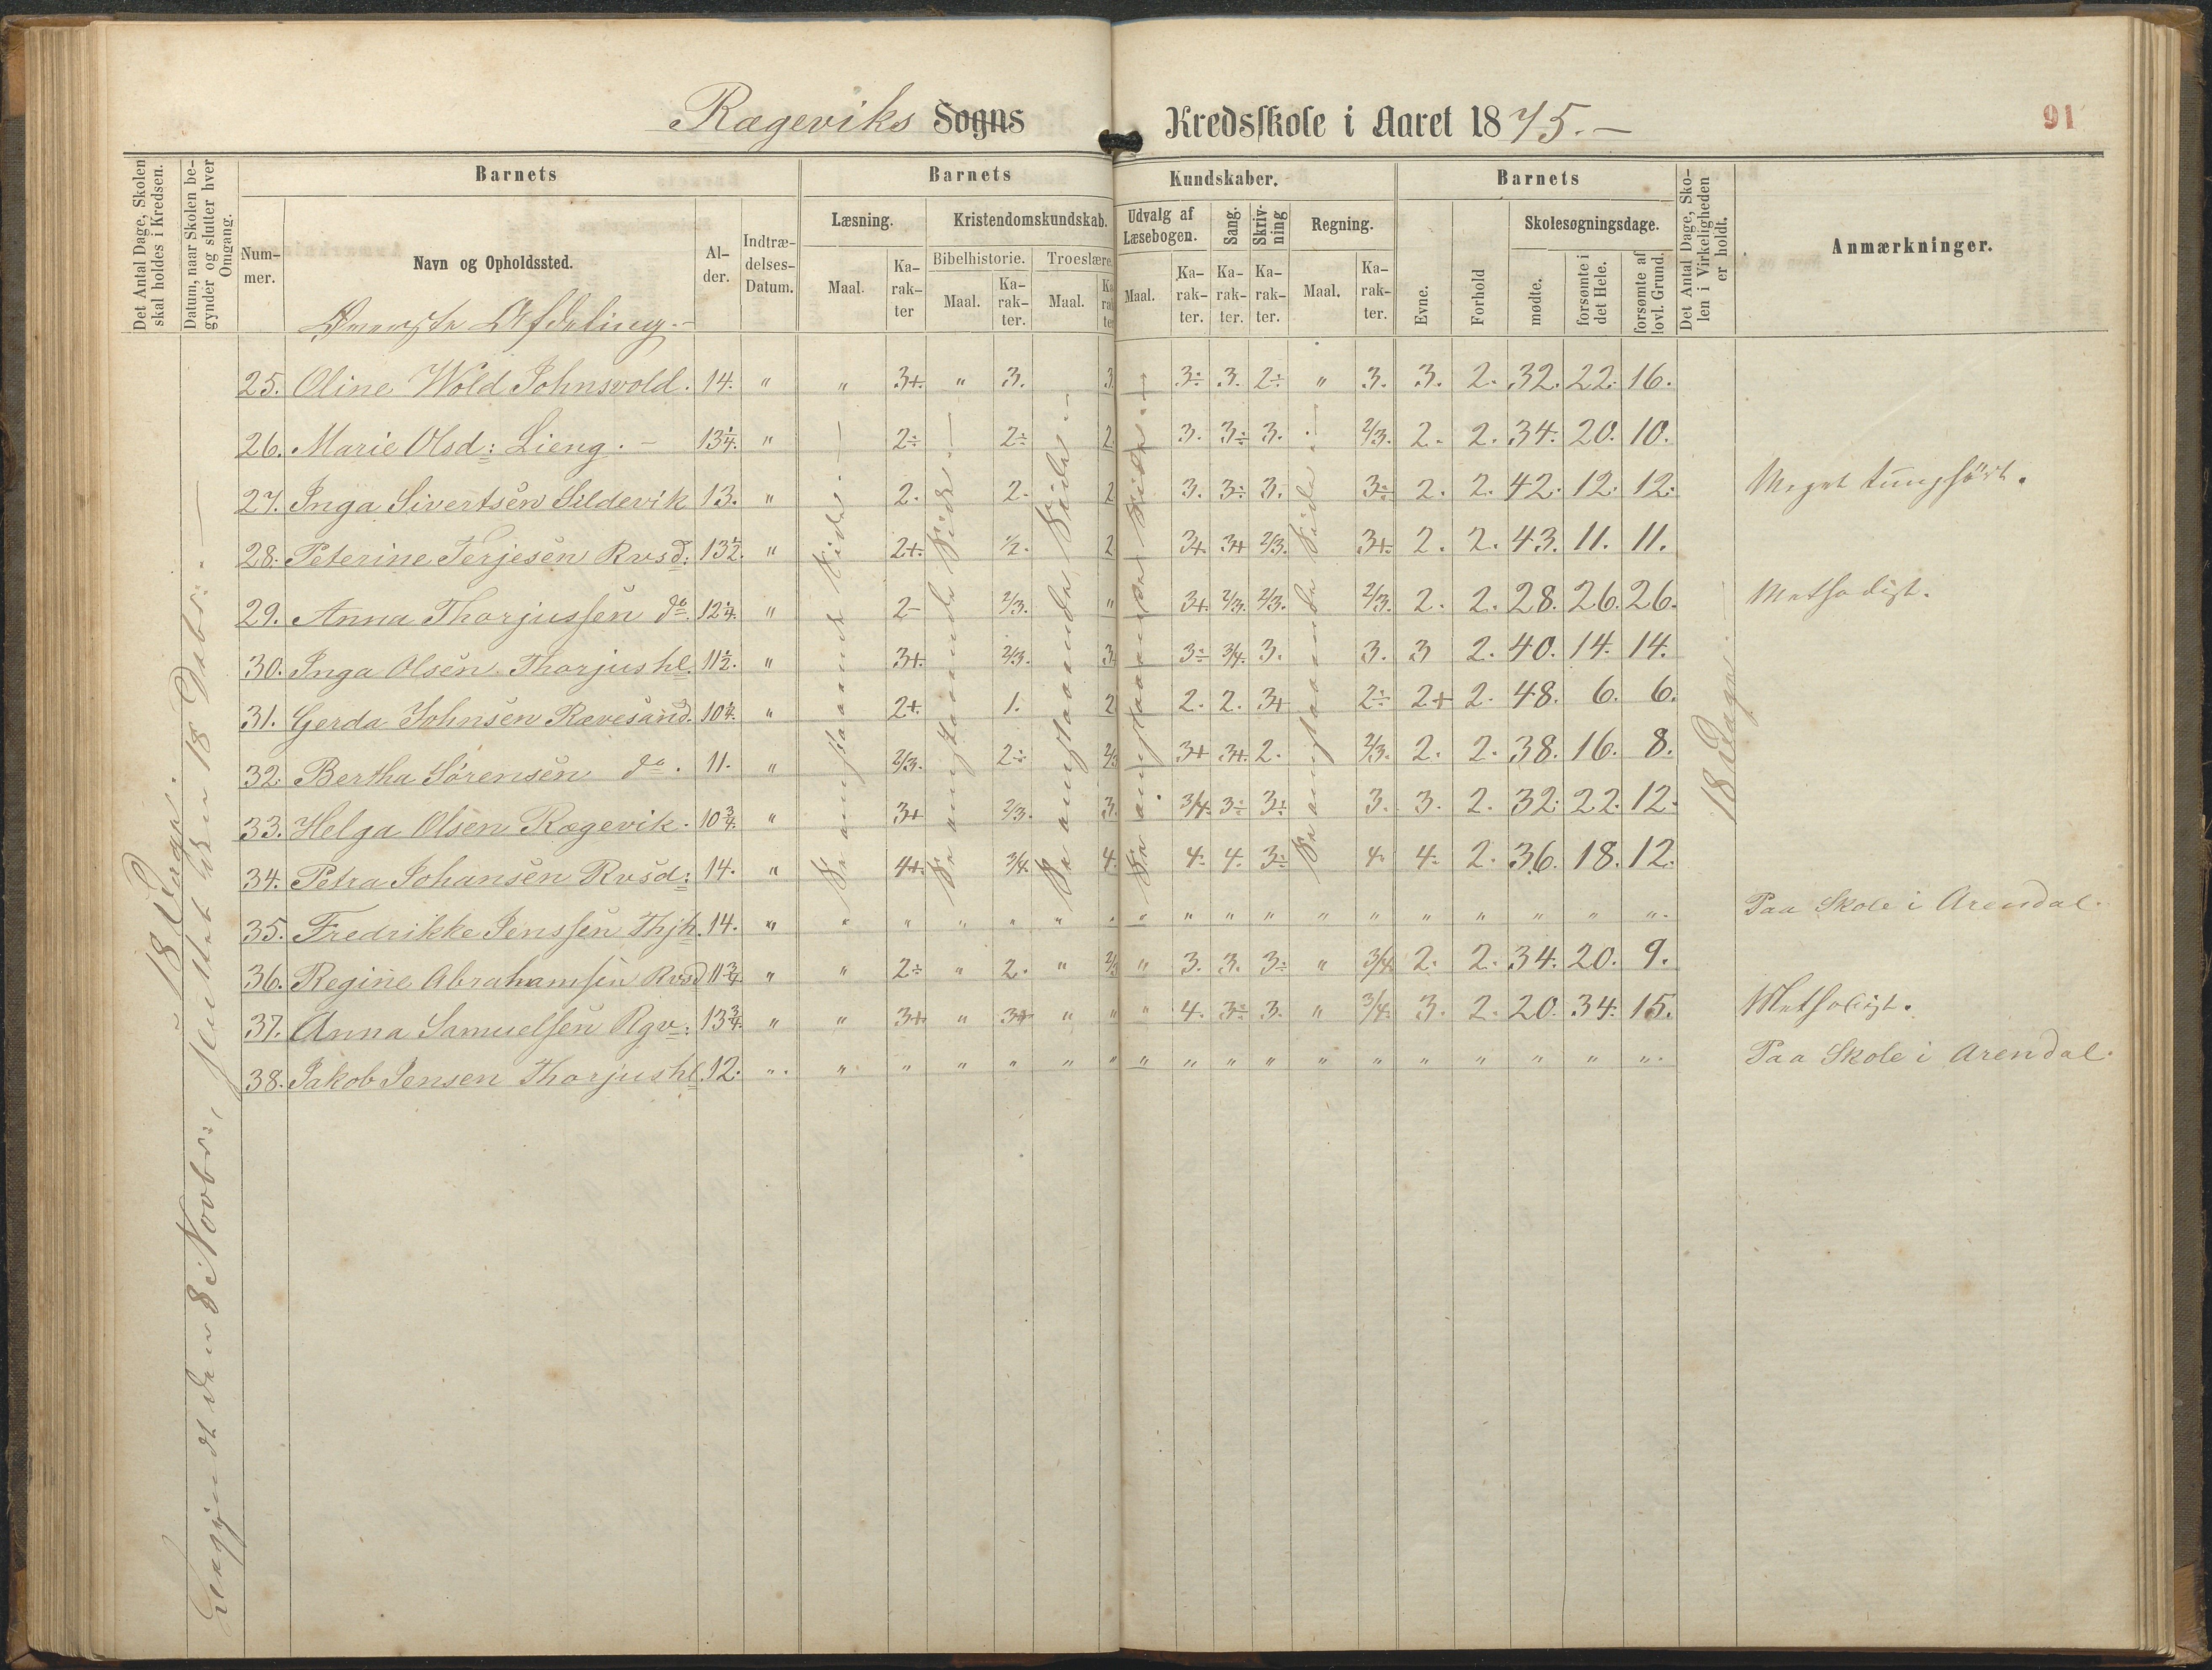 Rægeviks Sogns Kredsskole i Aaret 1875.—
91
Det Antal Dage, Skolen skal holdes i Kredsen.
Datum, naar Skolen begynder og slutter hver Omgang.
Barnets
Barnets
Kundskaber.
Barnets
Det Antal Dage, Skolen i Virkeligheden er holdt.
Anmærkninger.
Nummer.
Navn og Opholdssted.
Alder.
Indtrædelses-Datum.
Læsning.
Kristendomskundskab.
Udvalg af Læsebogen.
Sang.
Skrivning
Regning.
Skolesøgningsdage.
Bibelhistorie.
Troeslære.
Maal.
Karakter
Maal.
Karakter.
Maal.
Maal.
Karakter.
Karakter.
Karakter.
Maal.
Karakter.
Evne.
Forhold
mødte.
forsømte i det Hele.
forsømte af lovl. Grund.
Øverste Afdeling.—
25. Oline Wold Johnsvold. 14. " " 3+. " 3. 3. 3÷ 3. 2÷ " 3. 3. 2. 32. 22. 16.
26. Marie Olsd: Lieng.— 13¼. " 2÷ 2÷ 2. 3. 3÷ 3. 2/3. 2. 2. 34. 20. 10.
27. Inga Sivertsen Sildevik 13. " 2. 2. 2 3. 3÷ 3. 3÷ 2. 2. 42. 12. 12. Meget tunghørt.
28. Peterine Terjesen Rvsd: 13½. " 2+. ½. 2 3+. 3+ 2/3. 3+. 2. 2. 43. 11. 11.
29. Anna Thorjussen do 12¼. " 2- 2/3. " 3+. 2/3. 2/3. 2/3. 2. 2. 28. 26. 26. Methodist.
30. Inga Olsen Thorjushl. 11½. " 3+. 2/3. 3 3÷ 3/4. 3. 3. 3 2. 40. 14. 14.
31. Gerda Johnsen Rævesand. 10¼. " 2+. 1. 2 2. 2. 3+ 2÷ 2+ 2. 48. 6. 6.
32. Bertha Sørensen do. 11. " 2/3. 2÷ 2/3 3+ 3+. 2. 2/3. 2. 2. 38. 16. 8.
33. Helga Olsen Rægevik. 10¾. " 3+ 2/3. 3. 3/4. 3÷ 3÷ 3. 3. 2. 32. 22. 12.
34. Petra Johansen Rvsd: 14. " 4+. 3/4. 4. 4. 4. 3÷ 4. 4. 2. 36. 18. 12.
35. Fredrikke Jenssen Thjh. 14. " " " " " " " " " " " " " " " " " " ". Paa Skole i Arendal.
36. Regine Abrahamsen Rvsd 11¾. " " 2÷ " 2. " 2/3 " 3. 3. 3÷ " 3/4 2. 2. 34. 20. 9.
37. Anna Samuelsen Rgv: 13¾. " " 3+. " 3+ " " " 4. 3÷ 3. " 3/4. 3. 2. 20. 34. 15. Methodist.
38. Jakob Jensen Thorjushl. 12. " " " " " " " " " " " " " " " " " " ". Paa Skole i Arendal.
18 Dage.
Begyndt den 8 Novbr:, sluttet den 18 Debr:—
Se omstaaende Side.—
Se omstaaende Side.—
Se omstaaende Side.—
Se omstaaende Side.—
Se omstaaende Side.—
18 Dage.